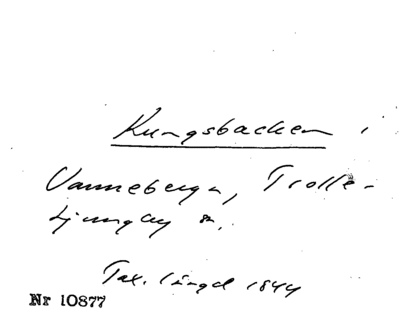 Kungsbacken i
Vanneberga, Trolle-
Ljungby sn.
Tax. längd 1844
Nr 10877